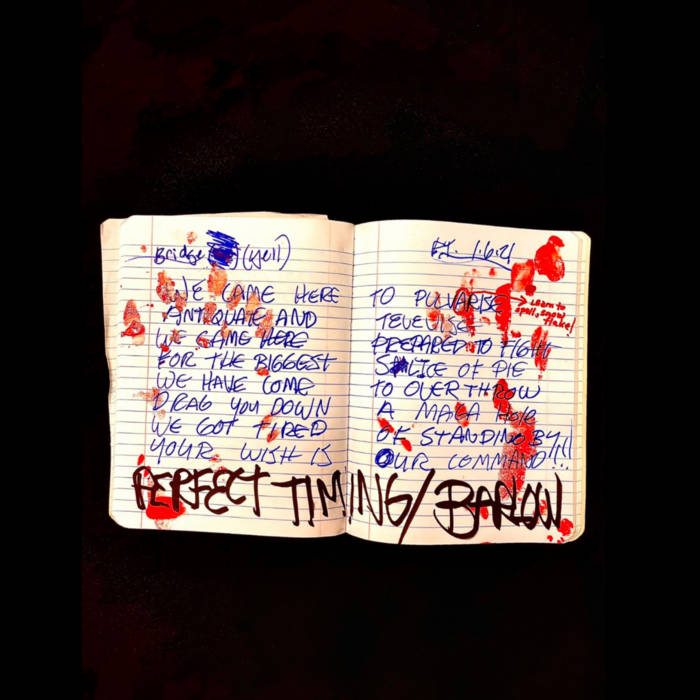 Bridge (Yell)
WE CAME HERE
ANTIQUATE AND
WE CAME HERE
FOR THE BIGGEST
WE HAVE COME
DRAG YOU DOWN
WE GOT TIRED
YOUR WISH IS
1.6.21
TO PULVARISE
Learn to
spell, snow
flake!
TELEVISE
PREPARED TO FIGHT
SLICE OF PIE
TO OVERTHROW
A MAGA HOLE
OF STANDING BY!!!
OUR COMMAND!..
PERFECT TIMING/BARLOW